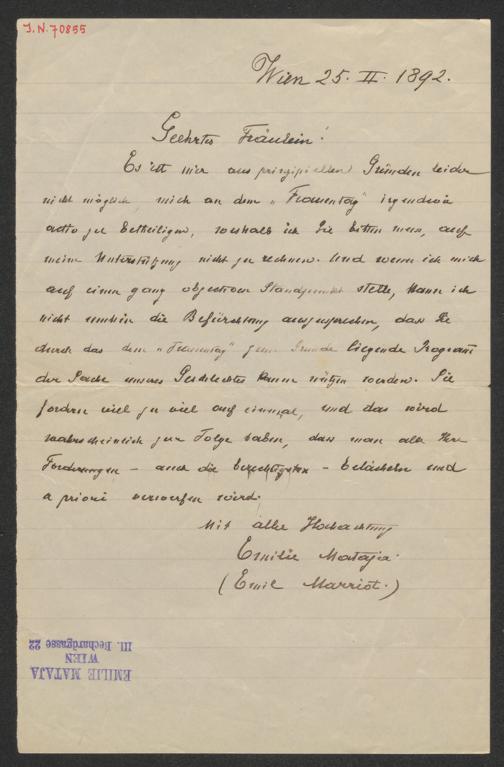 J.N. 70855
Wien 25. II. 1892.
Geehrtes Fräulein!
Es ist mir aus prinzipiellen Gründen leider
nicht möglich mich an dem „Frauentag“ irgendwie
activ zu betheiligen, weshalb ich Sie bitten muss, auf
meine Unterstützung nicht zu rechnen. Und wenn ich mich
auf einen ganz objectiven Standpunkt stelle, kann ich
nicht umhin die Befürchtung auszusprechen, dass Sie
durch das dem „Frauentag“ zum Grunde liegende Programm
der Sache unseres Geschlechtes kaum nützen werden. Sie
fordern viel zu viel auf einmal, und das wird
wahrscheinlich zur Folge haben, dass man alle Ihre
Forderungen – auch die berechtigsten – belächeln und
a priori verwerfen wird.
Mit aller Hochachtung
Emilie Mataja.
(Emil Marriot.)
EMILIE MATAJA
WIEN
III. Bechardgasse 22